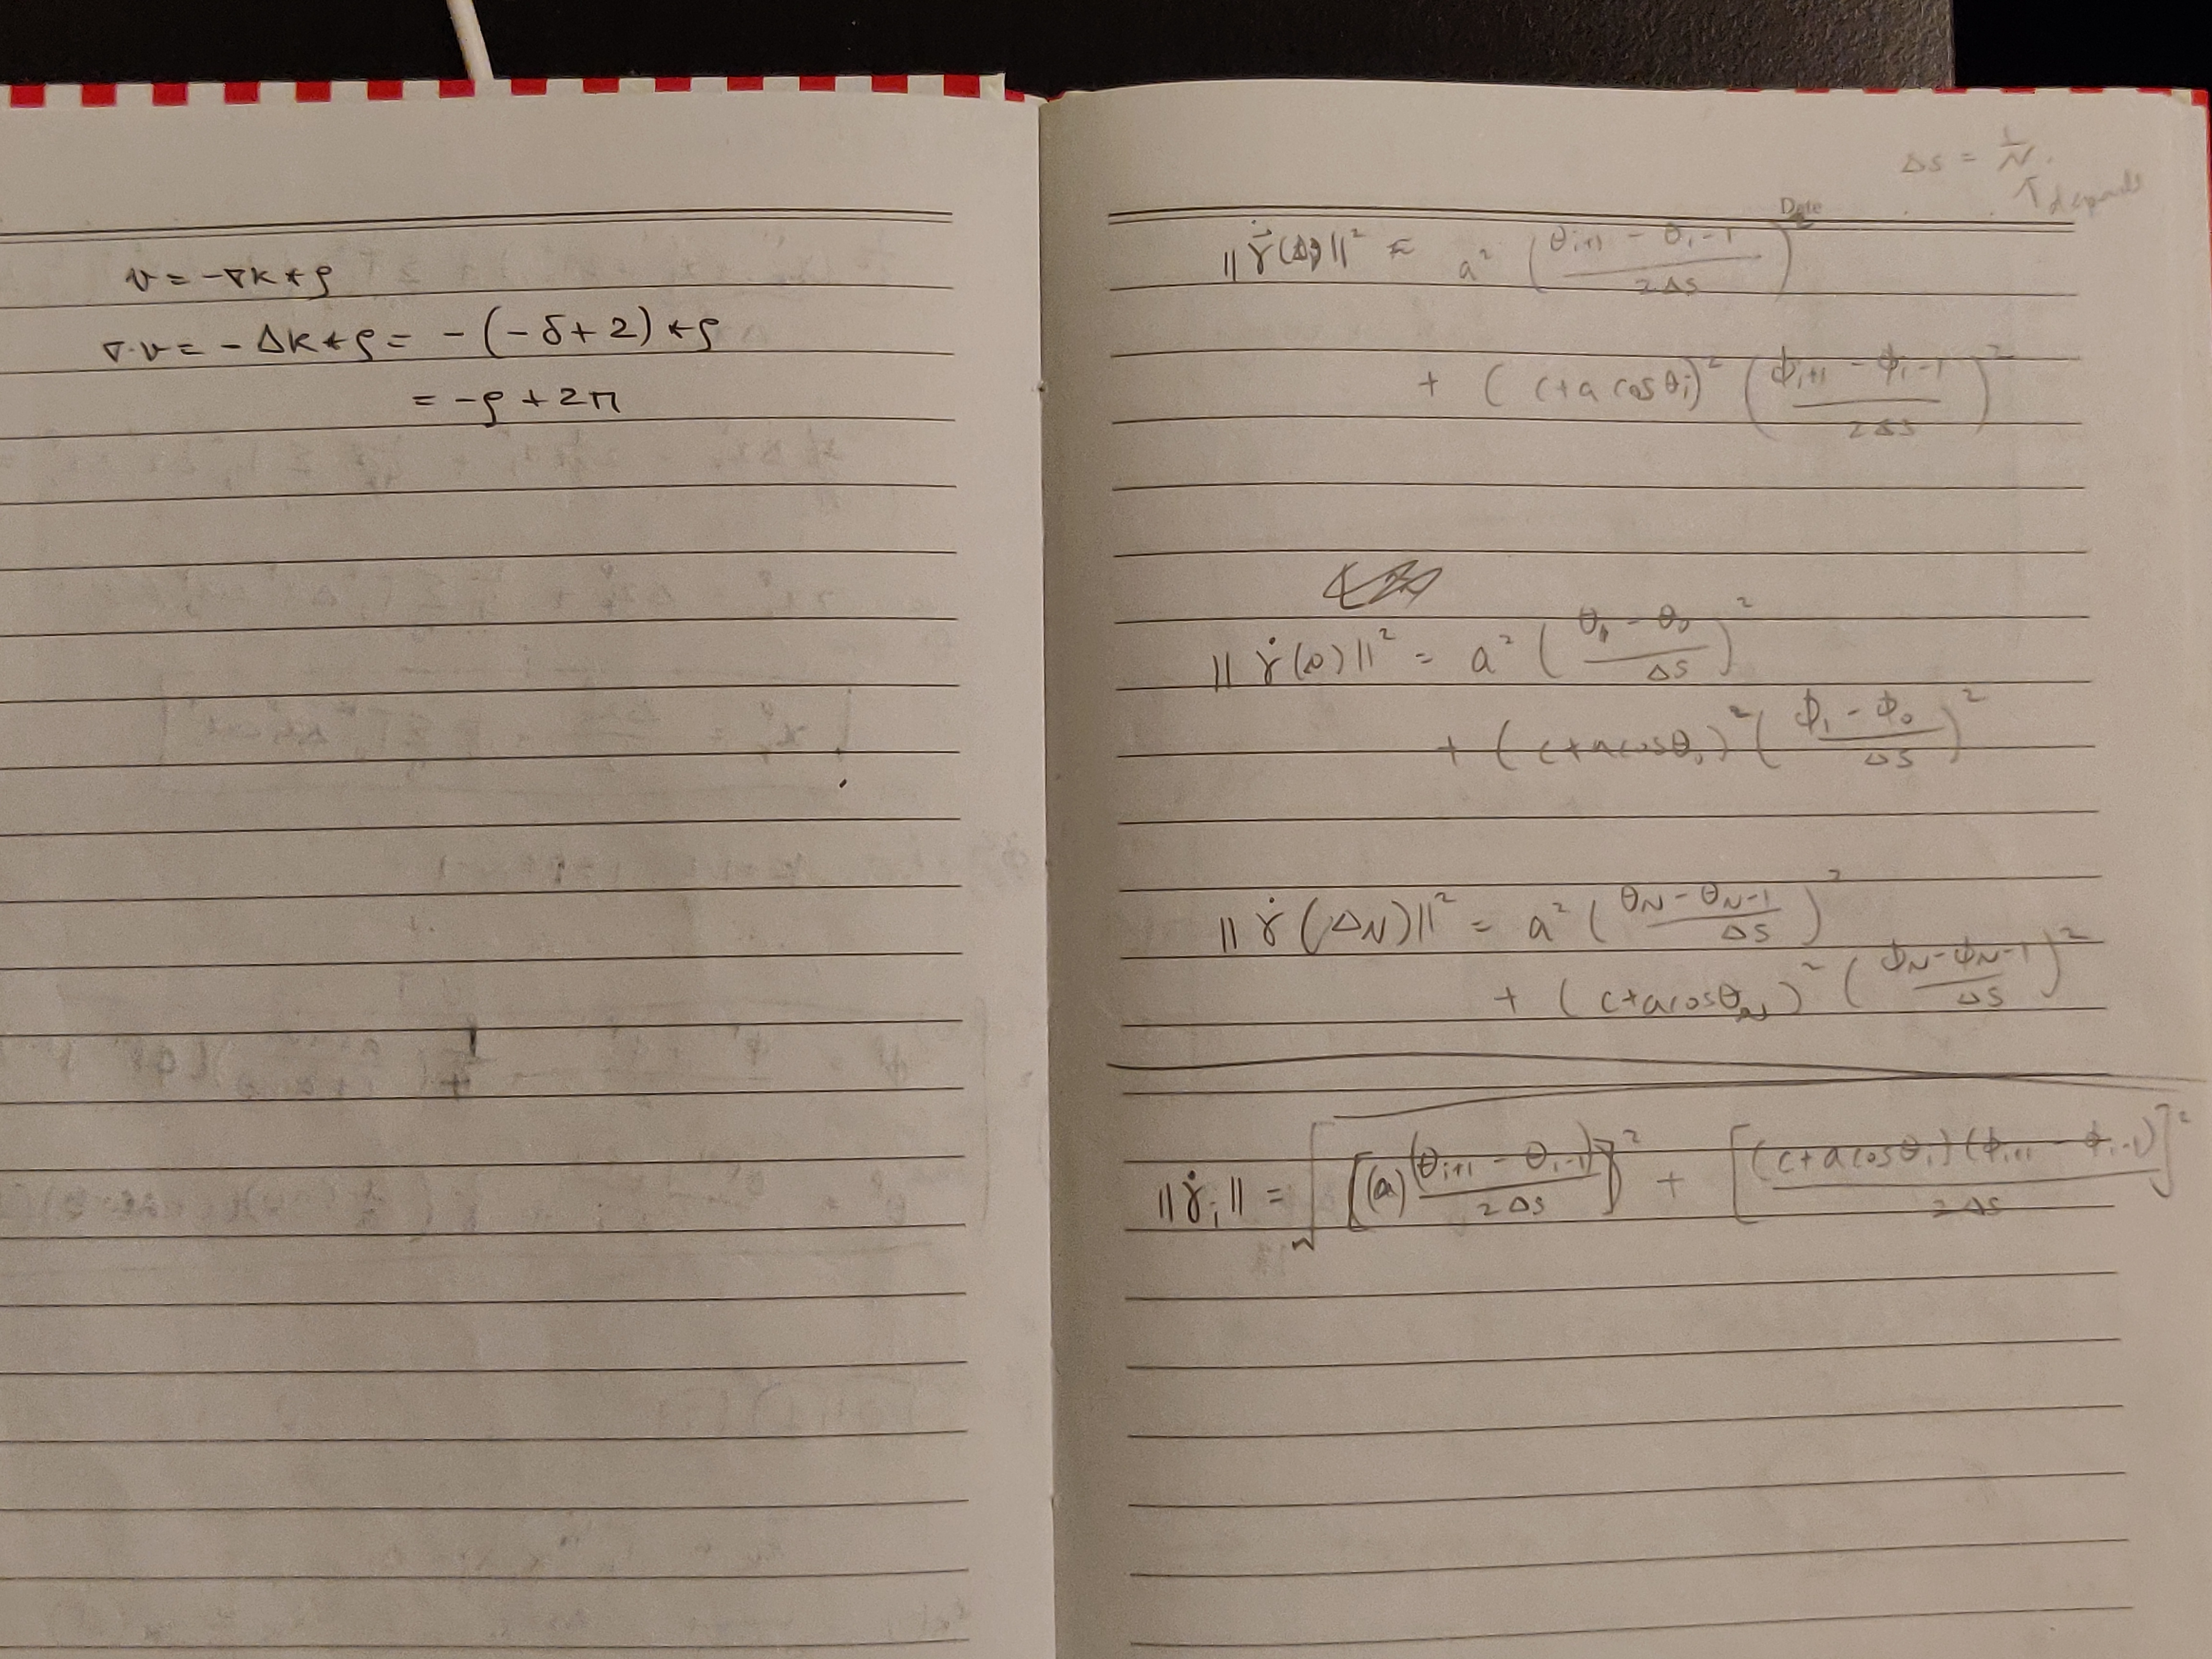 v = -∇K * ρ
∇·v = -ΔK * ρ = -(-δ + 2) * ρ
= -ρ + 2π
Date
Δs = 1/N.
depends
||γ̇(Δi)||² ≈ a² ((θᵢ₊₁ - θᵢ₋₁)/(2Δs))²
+ (c + a cosθᵢ)² ((ϕᵢ₊₁ - ϕᵢ₋₁)/(2Δs))²
||γ̇(0)||² = a² ((θ₁ - θ₀)/Δs)²
+ (c + a cosθ₁)² ((ϕ₁ - ϕ₀)/Δs)²
||γ̇(ΔN)||² = a² ((θ_N - θ_{N-1})/Δs)²
+ (c + a cosθ_N)² ((ϕ_N - ϕ_{N-1})/Δs)²
||γ̇ᵢ|| = √([(a)(θᵢ₊₁ - θᵢ₋₁)/(2Δs)]² + [(c + a cosθᵢ)(ϕᵢ₊₁ - ϕᵢ₋₁)/(2Δs)]²)